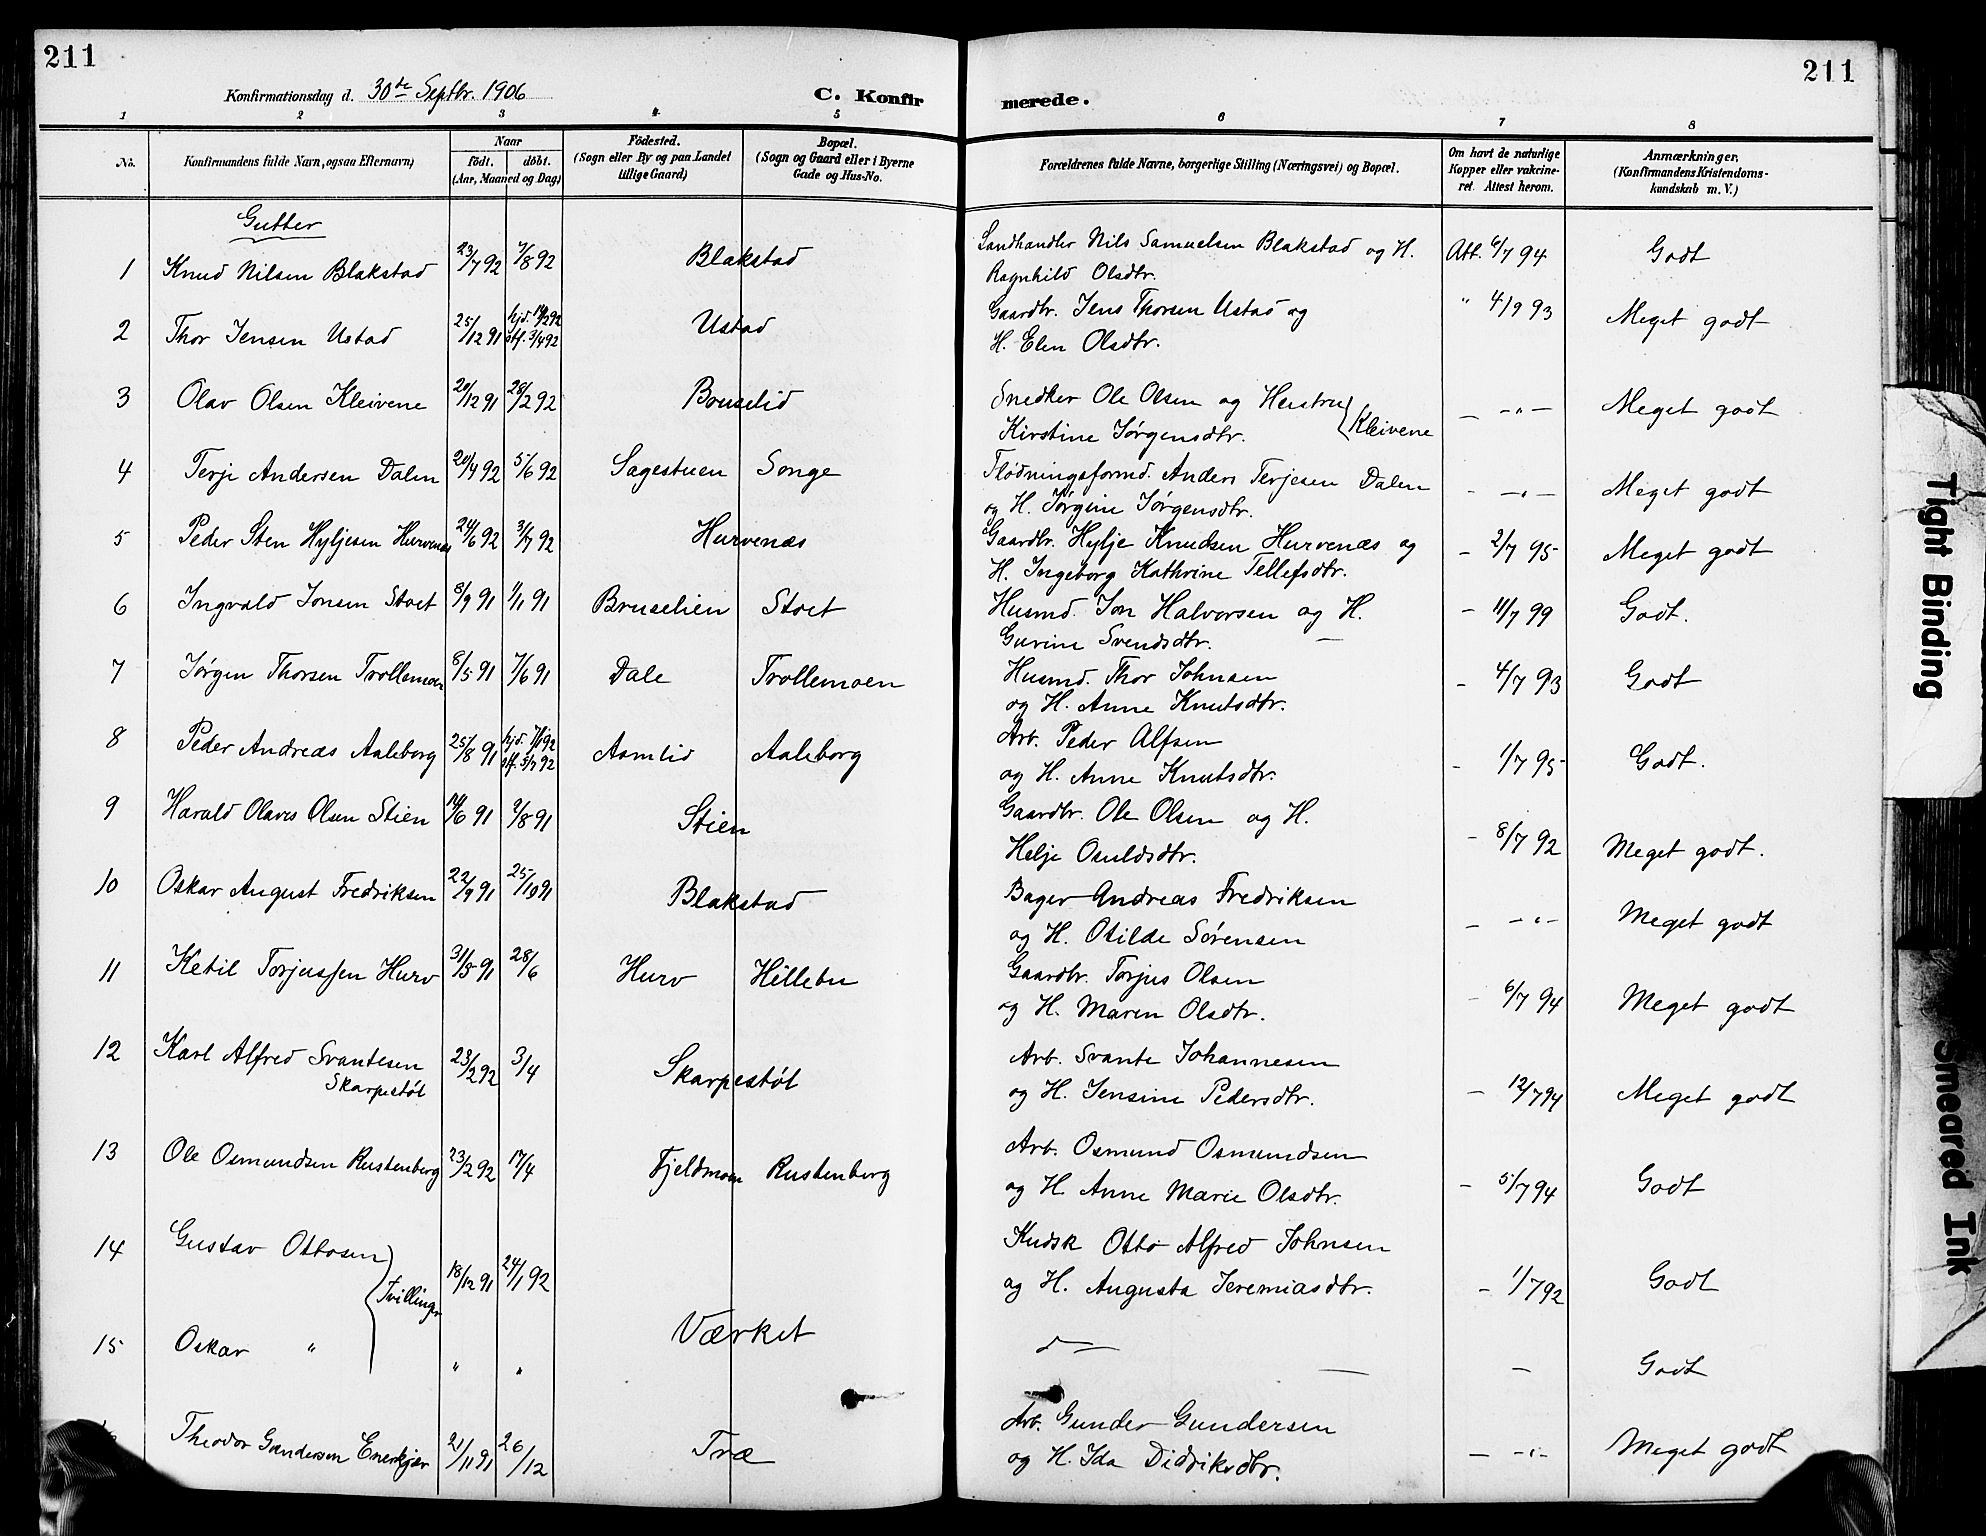 211
211
Konfirmationsdag d. 30te Septbr. 1906
C. Konfir
merede.
1 2 3 4 5 6 7 8
No.
Konfirmandens fulde Navn, ogsaa Efternavn)
Naar
födt. döbt.
(Aar, Maaned og Dag)
Födested.
(Sogn eller By og paa Landet
tillige Gaard)
Bopæl.
(Sogn og Gaard eller i Byerne
Gade og Hus-No.
Forældrenes fulde Navne, borgerlige Stilling (Næringsvei) og Bopæl.
Om havt de naturlige
Kopper eller vakcine-
ret. Attest herom.
Anmærkninger.
(Konfirmandens Kristendoms-
kundskab m. V.)
Gutter
1 Knud Nilsen Blakstad 23/7 92 7/8 92 Blakstad Landhandler Nils Samuelsen Blakstad og H. Att. 6/7 94 Godt
Ragnhild Olsdtr.
2 Thor Jensen Ustad 25/12 91 hjd. 14/2 92 Ustad Gaardbr. Jens Thorsen Ustad og " 4/9 93 Meget godt
off. 3/4 92 H. Elen Olsdtr.
3 Olav Olsen Kleivene 20/12 91 28/2 92 Bouselid Snedker Ole Olsen og Hustru Kleivene — -"- Meget godt
Kirstine Jørgensdtr.
4 Terje Andersen Dalen 20/4 92 5/6 92 Sagestuen Songe Flødningsformd. Anders Terjesen Dalen - -"- Meget godt
og H. Jørgine Jørgensdtr.
5 Peder Sten Hyljesen Hurvenæs 24/6 92 3/7 92 Hurvenæs Gaardbr. Hylje Knudsen Hurvenæs og - 2/7 95 Meget godt
H. Ingeborg Kathrine Tellefsdtr.
6 Ingvald Jonsen Stoet 8/9 91 1/11 91 Bruselien Stoet Husmd. Jon Halvorsen og H. - 11/7 99 Godt.
Gurine Svendsdtr.
7 Jørgen Thorsen Trollemoen 8/5 91 7/6 91 Dale Trollemoen Husmd. Thor Johnsen - 4/7 93 Godt
og H. Anne Knutsdtr.
8 Peder Andreas Aaleborg 25/8 91 hjd. 7/1 92 Aamlid Aaleborg Arb. Peder Alfsen - 1/7 95 Godt.
off. 3/7 92 og H. Anne Knutsdtr.
9 Harald Olaves Olsen Stien 14/6 91 2/8 91 Stien Gaardbr. Ole Olsen og H. - 8/7 92 Meget godt.
Helje Osuldsdtr.
10 Oskar August Fredriksen 22/9 91 25/10 91 Blakstad Bager Andreas Fredriksen - -"- Meget godt
og H. Otilde Sørensen
11 Ketil Torjussen Hurv 31/5 91 28/6 Hurv Hillebu Gaardbr. Torjus Olsen - 6/7 94 Meget godt
og H. Maren Olsdtr.
12 Karl Alfred Svantesen 23/2 92 3/4 Skarpestøl Arb. Svante Johannesen - 12/7 94 Meget godt
Skarpestøl og H. Jensine Pedersdtr.
13 Ole Osmundsen Rustenberg 23/2 92 17/4 Fjeldmoen Rustenberg Arb. Osmund Osmundsen - 5/7 94 Godt
og H. Anne Marie Olsdtr.
14 Gustav Ottosen Tvillinger 18/12 91 24/1 92 Kudsk Otto Alfred Johnsen - 1/7 92 Godt
og H. Augusta Jeremiasdtr.
Værket
15 Oskar " " " — — Godt
Theodor Gundersen Enerkjær 21/11 91 26/12 Træ Arb. Gunder Gundersen - -"- Meget godt
og H. Ida Didriksdtr.
Tight Binding
Smeared Ink